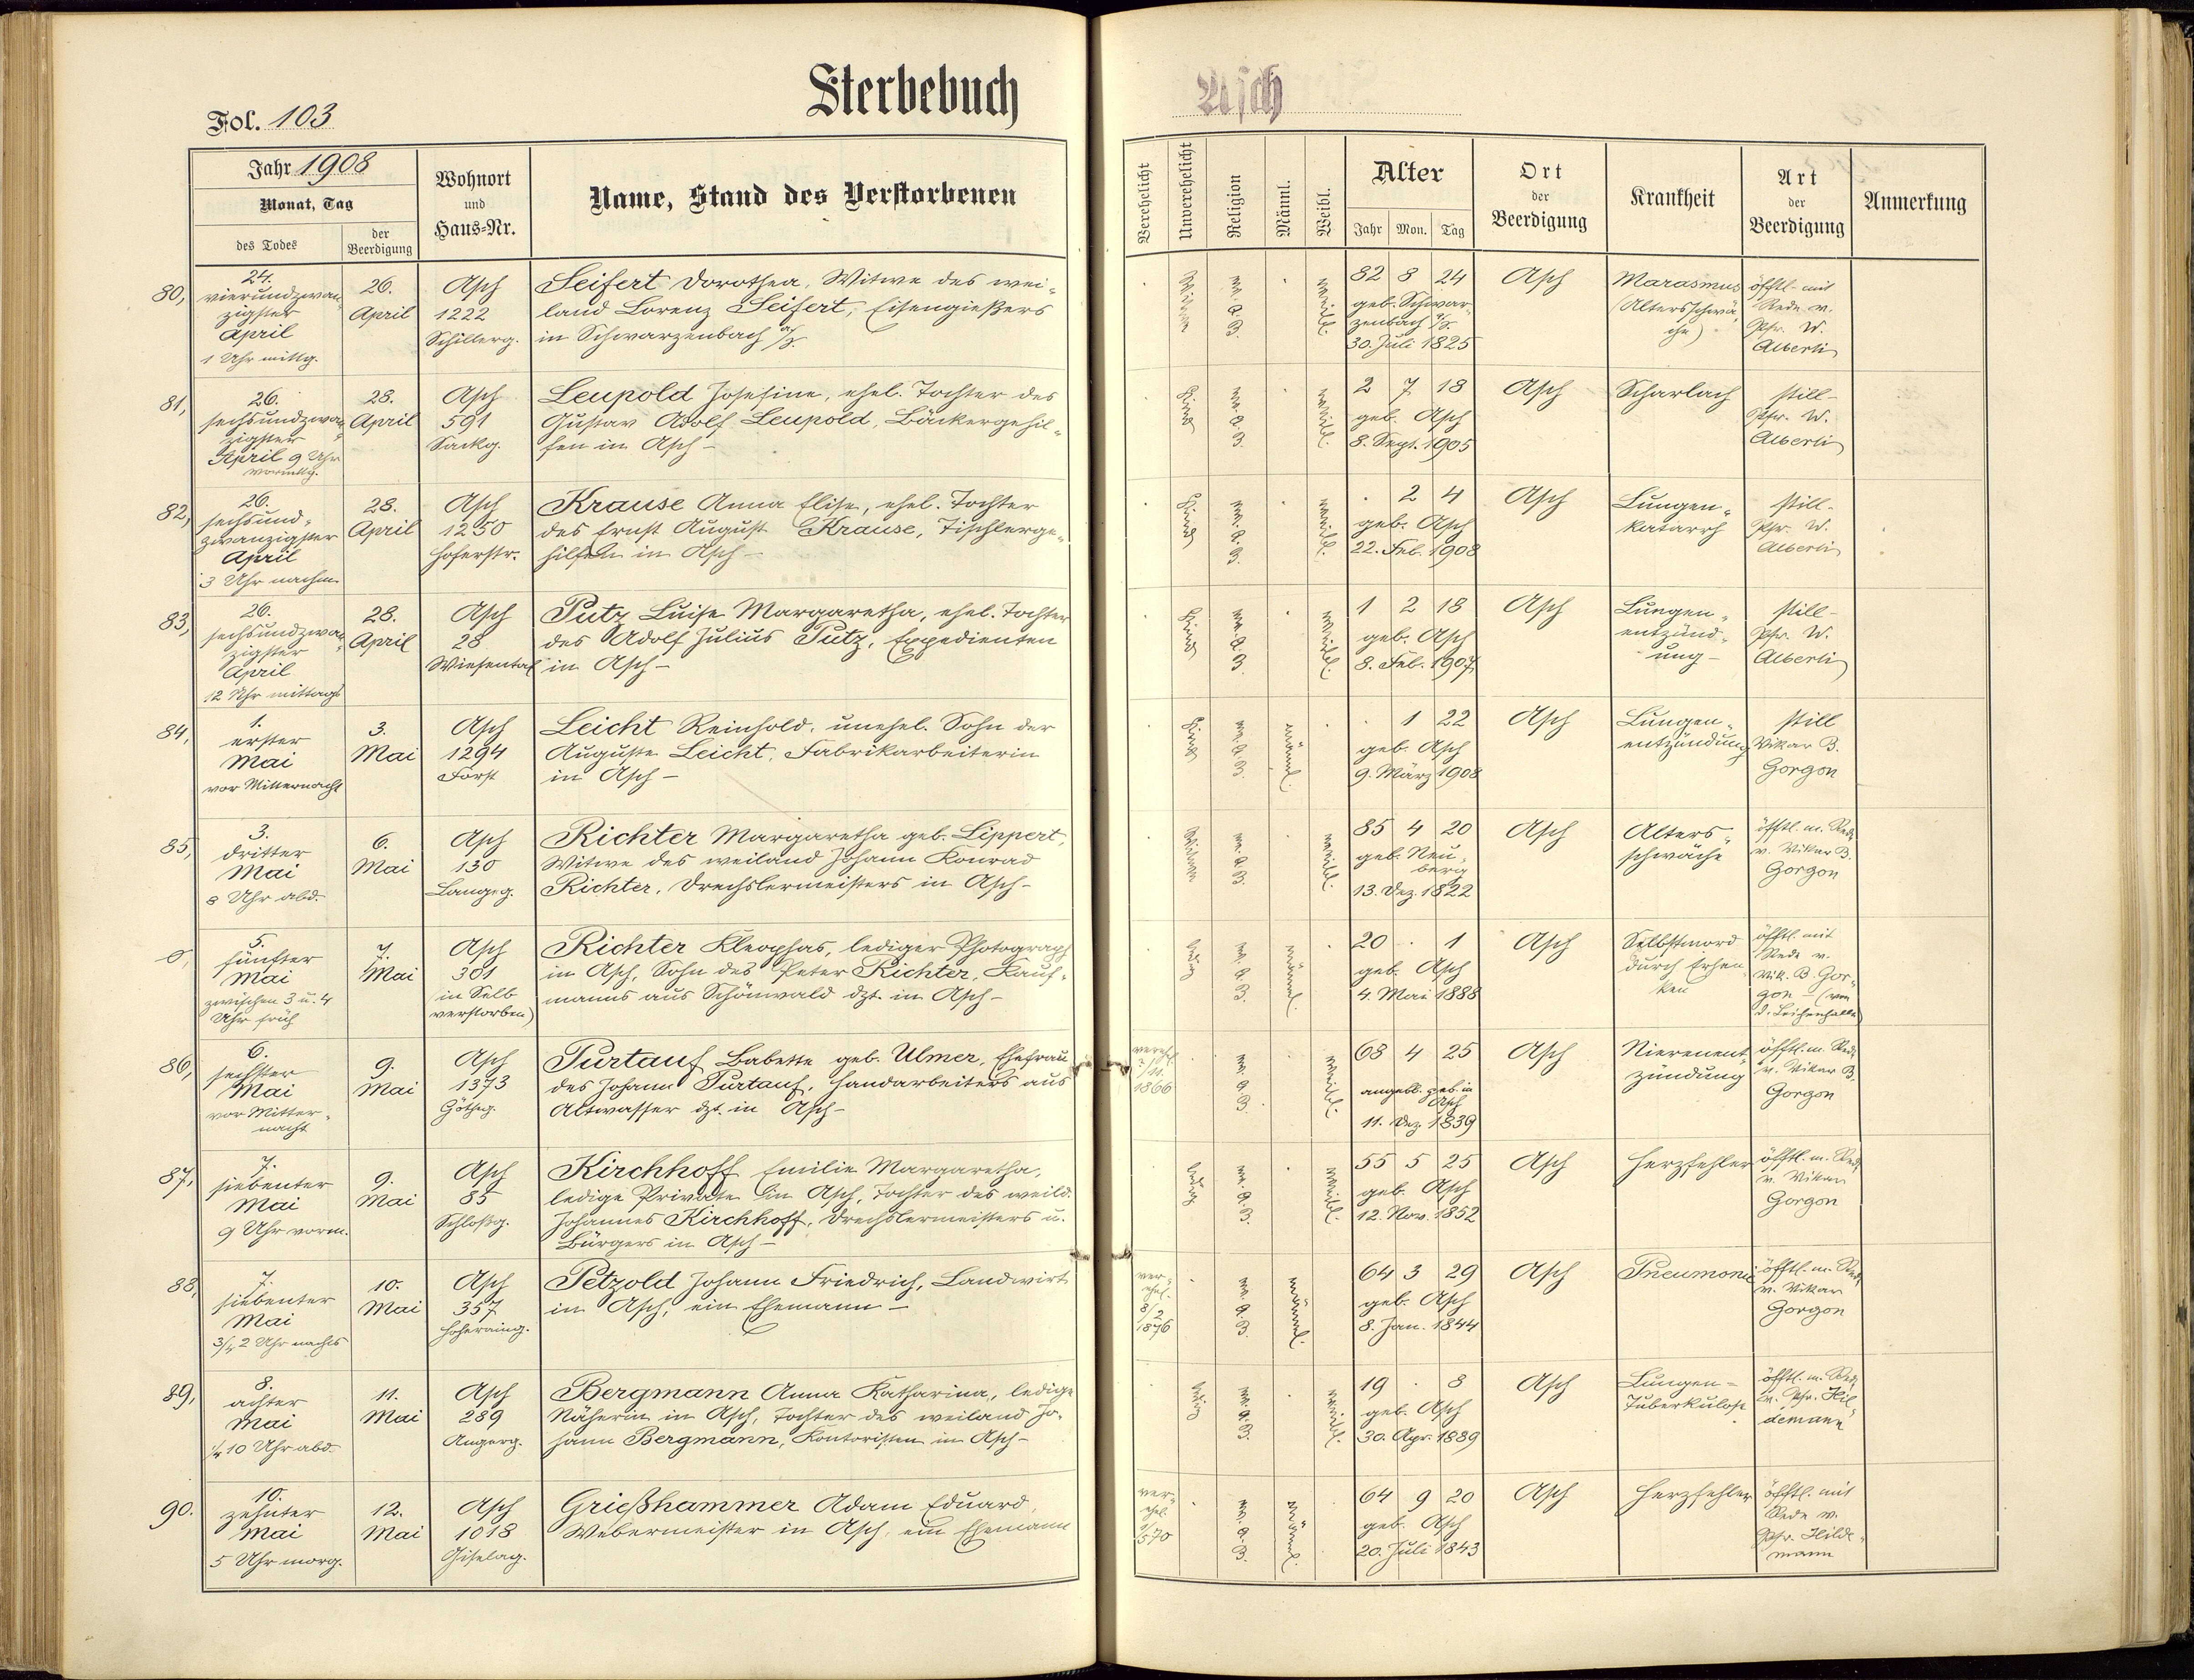 Sterbebuch
Asch
Fol. 103
Jahr 1908
Monat, Tag
des Todes
der Beerdigung
Wohnort
und
Haus=Nr.
Name, Stand des Verstorbenen
Verehelicht
Unverehelicht
Religion
Männl.
Weibl.
Alter
Jahr Mon. Tag
Ort
der
Beerdigung
Krankheit
Art
der
Beerdigung
Anmerkung
80,
24.
vierundzwan-
zigster
April
1 Uhr mittg.
26.
April
Asch
1222
Schillerg.
Seifert Dorothea, Witwe des wei-
land Lorenz Seifert, Eisengießers
in Schwarzenbach a/S.
Witwe
ev. A. B.
weibl.
82 8 24
geb. Schwar-
zenbach a/S.
30. Juli 1825
Asch
Marasmus
(Altersschwä-
che)
öfftl. mit
Rede v.
Pfr. W.
Alberti
81,
26.
sechsundzwan-
zigster
April 9 Uhr
vormittg.
28.
April
Asch
591
Sackg.
Leupold Josefine, ehel. Tochter des
Gustav Adolf Leupold, Bäckergehil-
fen in Asch -
Kind
ev. A. B.
weibl.
2 7 18
geb. Asch
8. Sept. 1905
Asch
Scharlach
still-
Pfr. W.
Alberti
82,
26.
sechsund-
zwanzigster
April
3 Uhr nachm.
28.
April
Asch
1250
Hoferstr.
Krause Anna Elise, ehel. Tochter
des Ernst August Krause, Tischlerge-
hilfen in Asch -
Kind
ev. A. B.
weibl.
. 2 4
geb. Asch
22. Feb. 1908
Asch
Lungen-
katarrh
still-
Pfr. W.
Alberti
83,
26.
sechsundzwan-
zigster
April
12 Uhr mittags
28.
April
Asch
28
Wiesental
Putz Luise Margaretha, ehel. Tochter
des Adolf Julius Putz, Expedienten
in Asch -
Kind
ev. A. B.
weibl.
1 2 18
geb. Asch
8. Feb. 1907
Asch
Lungen-
entzünd-
ung -
still-
Pfr. W.
Alberti
84,
1.
erster
Mai
vor Mitternacht
3.
Mai
Asch
1294
Forst
Leicht Reinhold, unehel. Sohn der
Auguste Leicht, Fabrikarbeiterin
in Asch -
Kind
ev. A. B.
männl.
. 1 22
geb. Asch
9. März 1908
Asch
Lungen-
entzündung
still
Vikar B.
Gorgon
85,
3.
dritter
Mai
8 Uhr abd.
6.
Mai
Asch
130
Langeg.
Richter Margaretha geb. Lippert,
Witwe des weiland Johann Konrad
Richter, Drechslermeisters in Asch -
Witwe
ev. A. B.
weibl.
85 4 20
geb. Neu-
berg
13. Dez. 1822
Asch
Alters-
schwäche
öfftl. m. Rede
v. Vikar B.
Gorgon
0,
5.
fünfter
Mai
zwischen 3 u. 4
Uhr früh
7.
Mai
Asch
301
(in Selb
verstorben)
Richter Kleophas, lediger Photograph
in Asch, Sohn des Peter Richter, Kauf-
manns aus Schönwald dzt. in Asch -
ledig
ev. A. B.
männl.
20 . 1
geb. Asch
4. Mai 1888
Asch
Selbstmord
durch Erhen-
ken
öfftl. mit
Rede v.
Vik. B. Gor-
gon - (von
d. Leichenhalle)
86,
6.
sechster
Mai
vor Mitter-
nacht
9.
Mai
Asch
1373
Götheg.
Purtauf Babette geb. Ulmer, Ehefrau
des Johann Purtauf, Handarbeiters aus
Altwasser dzt. in Asch -
1866
ev. A. B.
weibl.
68 4 25
angebl. geb. in
Asch
11. Dez. 1839
Asch
Nierenent-
zündung
öfftl. m. Rede
v. Vikar B.
Gorgon
87,
7.
siebenter
Mai
9 Uhr vorm.
9.
Mai
Asch
85
Schloßg.
Kirchhoff Emilie Margaretha,
ledige Private in Asch, Tochter des weild.
Johannes Kirchhoff, Drechslermeisters u.
Bürgers in Asch -
ledig
ev. A. B.
weibl.
55 5 25
geb. Asch
12. Nov. 1852
Asch
Herzfehler
öfftl. m. Rede
v. Vikar
Gorgon
88,
7.
siebenter
Mai
3/4 2 Uhr nachts
10.
Mai
Asch
357
Hoheraing.
Petzold Johann Friedrich, Landwirt
in Asch, ein Ehemann -
ver-
ehel.
8/2
1876
ev. A. B.
männl.
64 3 29
geb. Asch
8. Jan. 1844
Asch
Pneumonie
öfftl. m. Rede
v. Vikar
Gorgon
89,
8.
achter
Mai
1/4 10 Uhr abd.
11.
Mai
Asch
289
Angerg.
Bergmann Anna Katharina, ledige
Näherin in Asch, Tochter des weiland Jo-
hann Bergmann, Kontoristen in Asch -
ledig
ev. A. B.
weibl.
19 . 8
geb. Asch
30. Apr. 1889
Asch
Lungen-
Tuberkulose
öfftl. m. Rede
v. Pfr. Hil-
demann
90.
10.
zehnter
Mai
5 Uhr morg.
12.
Mai
Asch
1018
Giselag.
Grießhammer Adam Eduard,
Webermeister in Asch, ein Ehemann
ver-
ehel.
ev. A. B.
männl.
64 9 20
geb. Asch
20. Juli 1843
Asch
Herzfehler
öfftl. mit
Rede v.
Pfr. Hilde-
mann